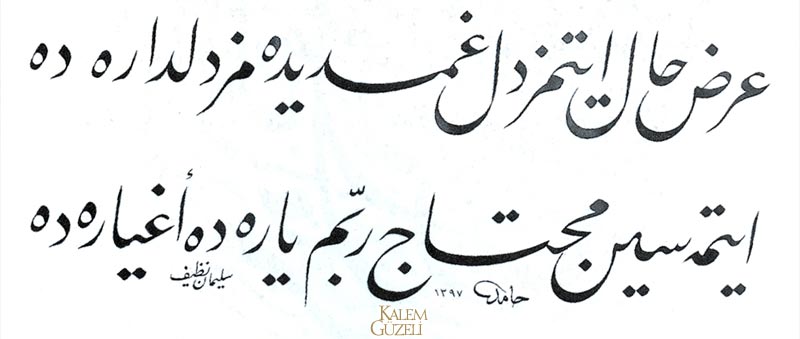 عرض حال ایتمز دل غمدیده مز دلداره ده
ایتمه سین محتاج ربّم یاره ده أغیاره ده
سلیمان نظیف
حامد ١٣٩٧
KALEM
GÜZELİ